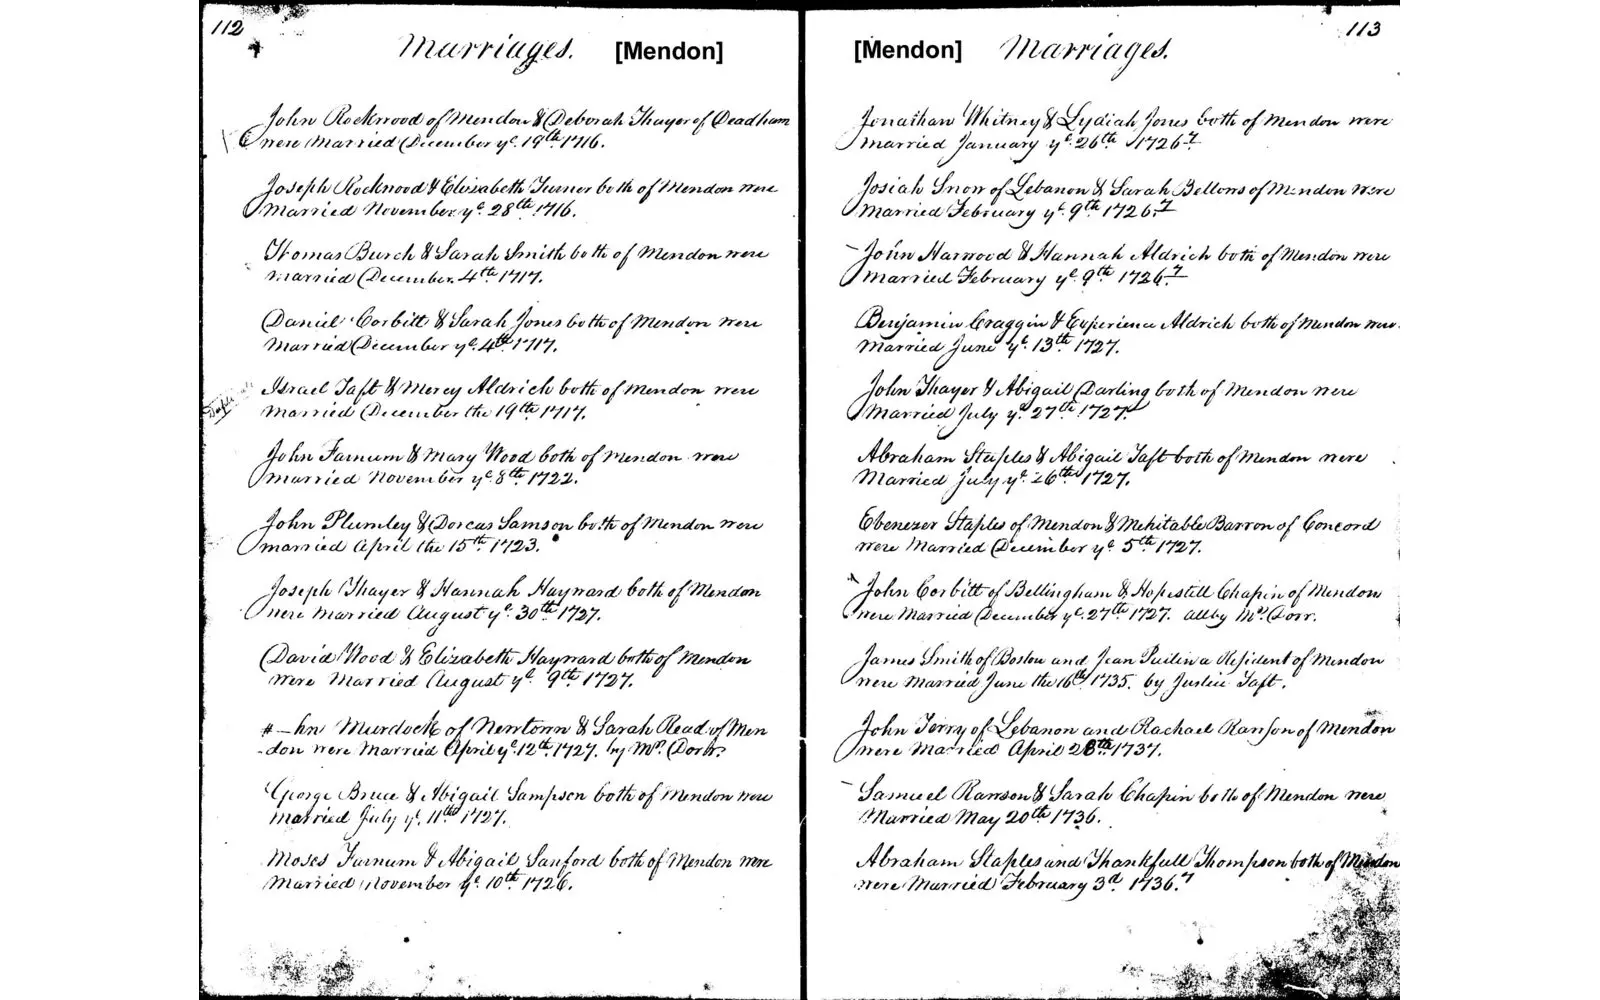 112
Marriages. [Mendon]
John Rockwood of Mendon & Deborah Thayer of Deadham
were Married December ye. 19th 1716.
Joseph Rockwood & Elizabeth Turner both of Mendon were
Married November ye. 28th 1716.
Thomas Burch & Sarah Smith both of Mendon were
married December 4th 1717.
Daniel Corbitt & Sarah Jones both of Mendon were
Married December ye. 4th 1717.
Israel Taft & Mercy Aldrich both of Mendon were
married December the 19th 1717.
John Farnum & Mary Wood both of Mendon were
married November ye. 8th 1722.
John Plumley & Dorcas Samson both of Mendon were
married April the 15th 1723.
Joseph Thayer & Hannah Hayward both of Mendon
were Married August ye. 30th 1727.
David Wood & Elizabeth Hayward both of Mendon
were Married August ye. 9th 1727.
#-hn Murdock of Newtown & Sarah Read of Men
-don were Married April ye. 12th 1727. by Mr. Dorr.
George Bruce & Abigail Sampson both of Mendon were
married July ye. 11th 1727.
Moses Farnum & Abigail Sanford both of Mendon were
Married November ye. 10th 1726.
113
[Mendon] Marriages.
Jonathan Whitney & Lydiah Jones both of Mendon were
married January ye. 26th 1726.7
Josiah Snow of Lebanon & Sarah Bellows of Mendon were
married February ye. 9th 1726.7
John Harwood & Hannah Aldrich both of Mendon were
married February ye. 9th 1726.7
Benjamin Craggin & Experience Aldrich both of Mendon were
married June ye. 13th 1727.
John Thayer & Abigail Darling both of Mendon were
Married July ye. 27th 1727.
Abraham Staples & Abigail Taft both of Mendon were
Married July ye. 26th 1727.
Ebenezer Staples of Mendon & Mehitable Barron of Concord
were Married December ye. 5th 1727.
John Corbitt of Bellingham & Hopestill Chapin of Mendon
were Married December ye. 27th 1727. all by Mr. Dorr.
James Smith of Boston and Jean a Resident of Mendon
were Married June the 16th 1735. by Justice Taft.
John Terry of Lebanon and Rachael Ranson of Mendon
were Married April 28th 1737.
Samuel Rawson & Sarah Chapin both of Mendon were
Married May 20th 1736.
Abraham Staples and Thankfull Thompson both of Mendon
were Married February 3d. 1736.7